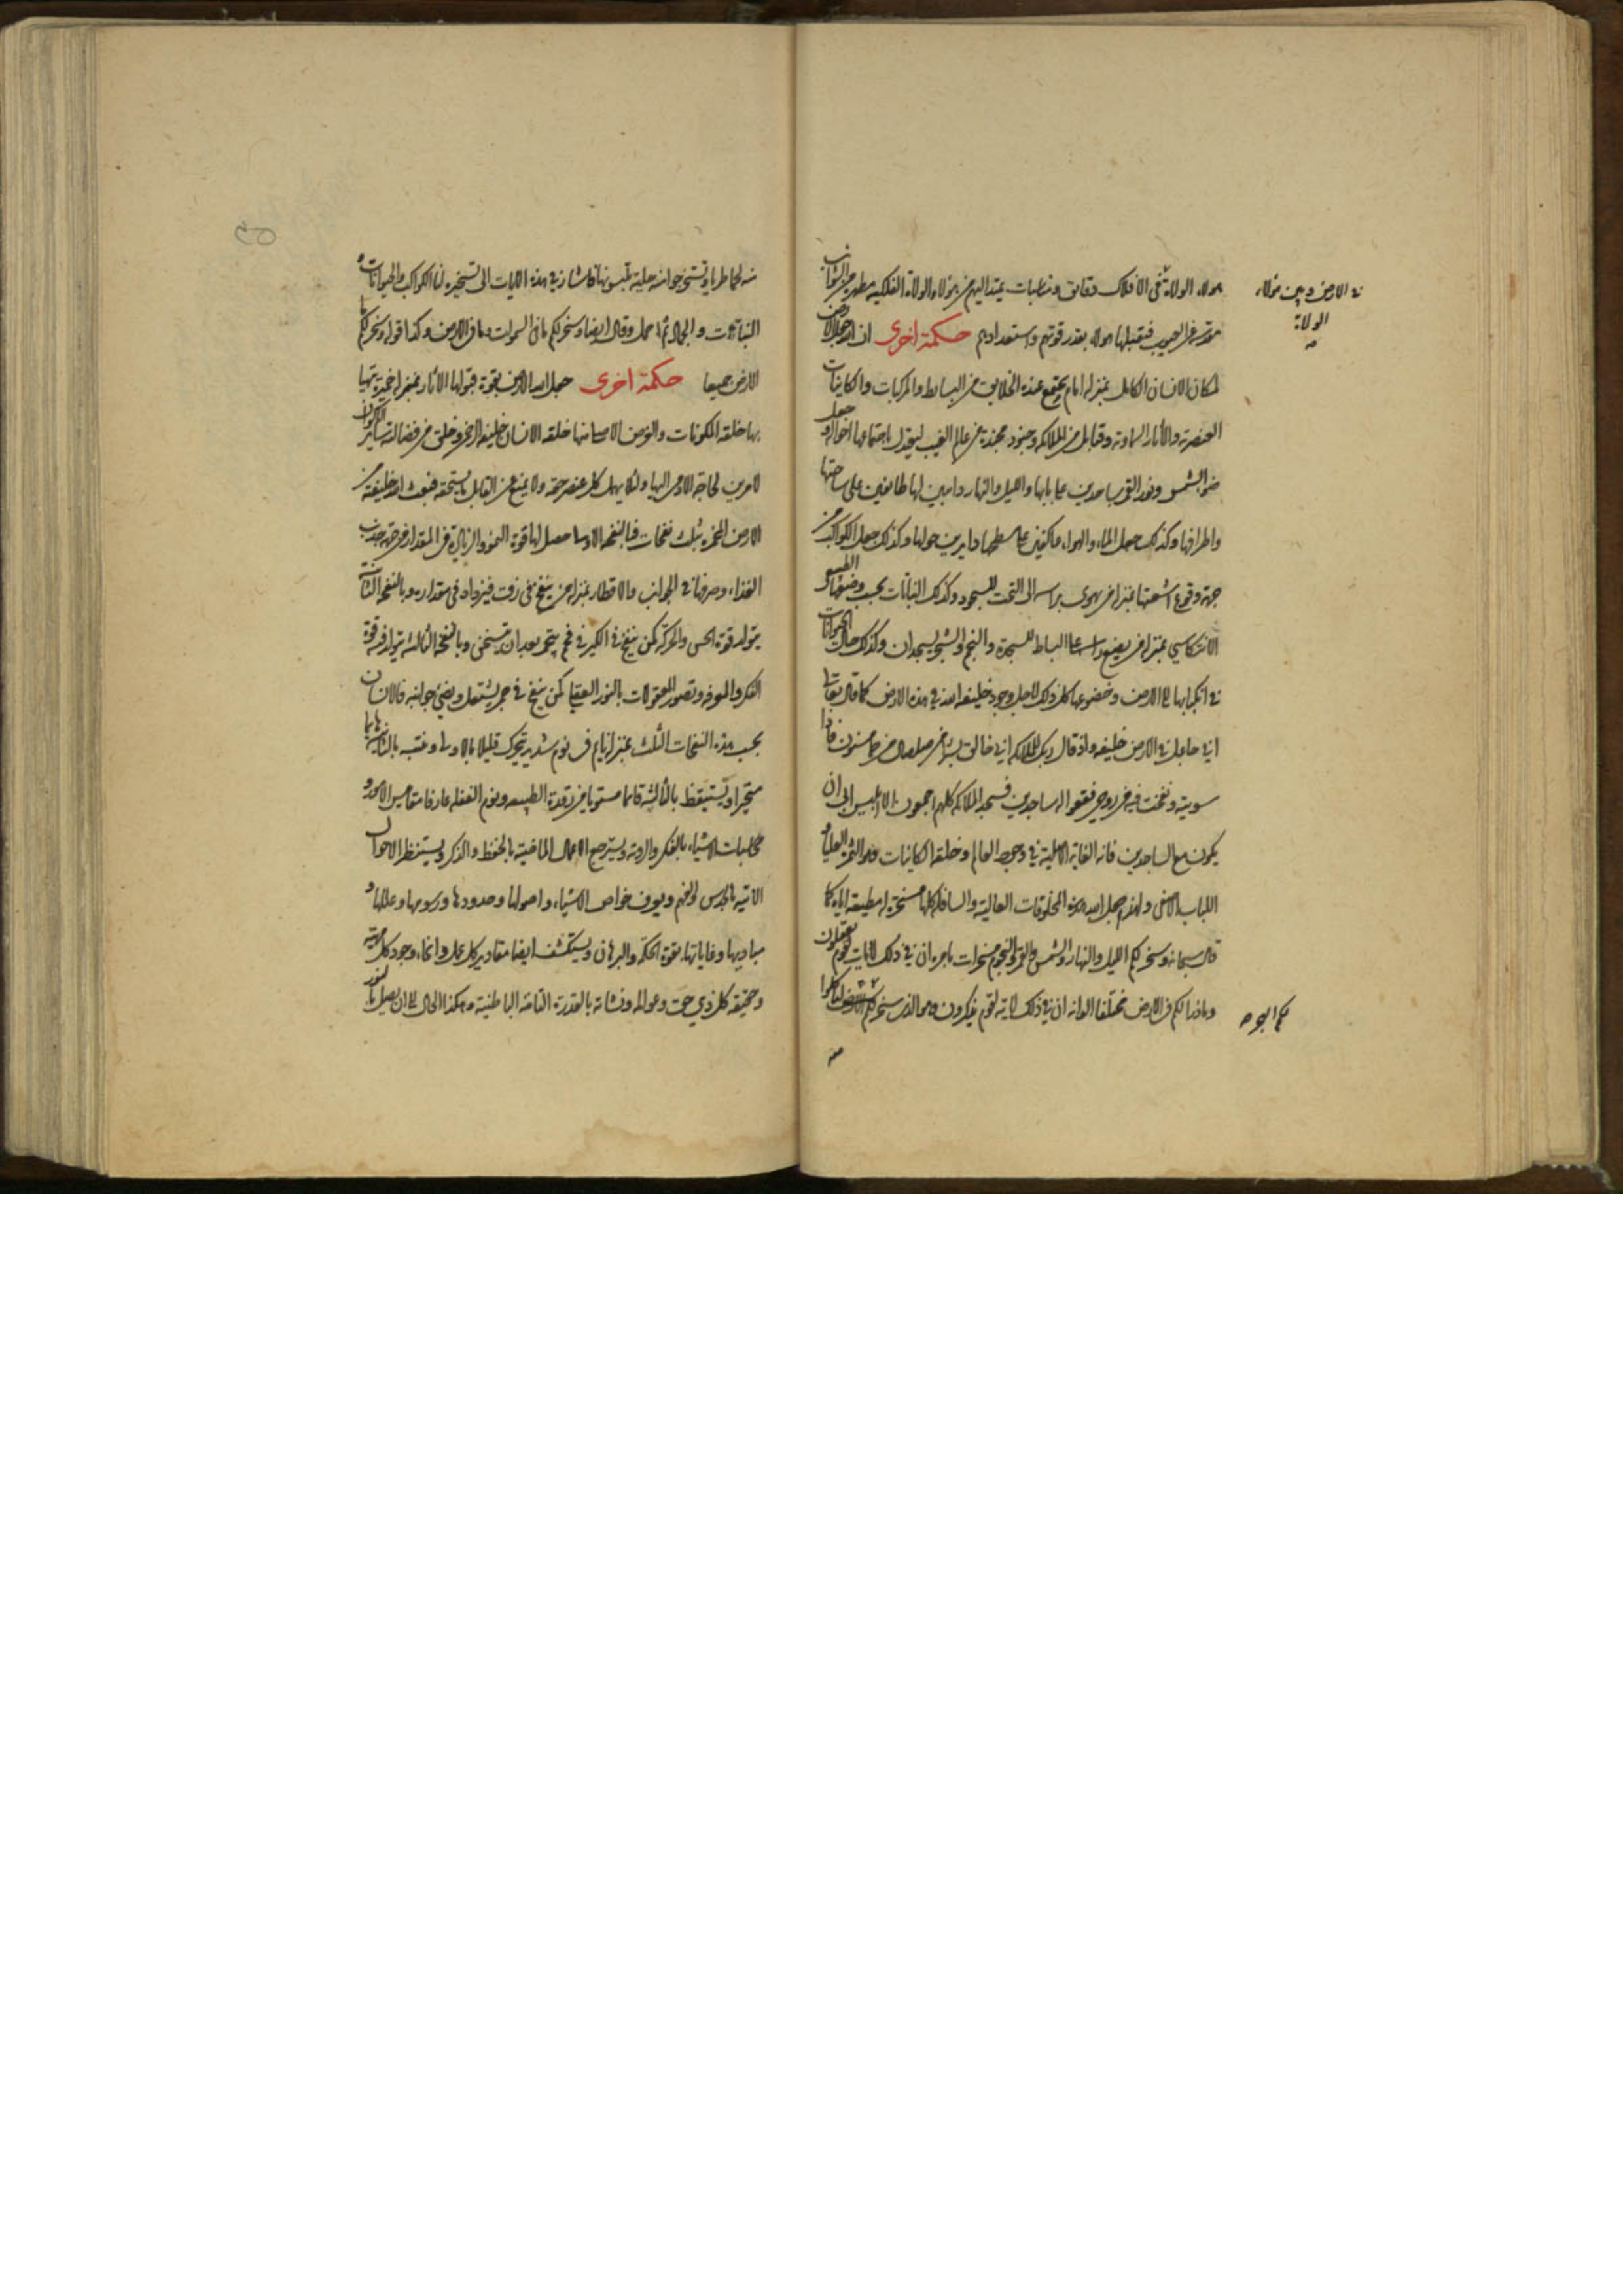 هولاء الولاة في الافلاك دقايق ومناسبات يمتد اليهم من هؤلاء الولاة الفلكيه مطهرة من الشوايب
مقدسه عن العيوب فتقبلها هولاء بقدر قوتهم واستعدادهم حكمة اخرى ان الله جعل الارض
لمكان الانسان الكامل بمنزله امام يجتمع عنده الخلايق من البسايط والمركبات والكاينات
العنصرية والآثار السماوية وقبايل من الملائكه وجنود مجندة من عالم الغيب ليعتدل باجتماعها احواله وجعل
ضوء الشمس ونور القمر ساجدين على بابها والليل والنهار دايبين لها طائفين على ساحتها
واطرافها وكذلك جعل الماء والهواء عاكفين على سطحها دايرين حولها وكذلك جعل الكواكب من
جهة وقوع اشعتها بمنزله من يهوى براسه الى التحت للسجود وكذلك النباتات بحسب وضعها
الانتكاسي بمنزله من يضع راسه على البساط للسجدة والنجم والشجر يسجدان وكذلك حال الحيوانات
في انكبابها الى الارض وخضوعها كل ذلك لاجل وجود خليفه الله في هذه الارض كما قال تعالى
اني جاعل في الارض خليفه واذ قال ربك للملائكه اني خالق بشرا من صلصال من حما مسنون فاذا
سويته ونفخت فيه من روحي فقعوا له ساجدين فسجد الملائكه كلهم اجمعون الا ابليس ابى ان
يكون مع الساجدين فانه الغاية الاصلية في وجود العالم وخلقه الكاينات وهو الثمرة العليا و
اللباب الاصفى ولهذا جعل الله هذه المخلوقات العالية والسافلة كلها مسخرة له مطيعه اياه كما
قال سبحانه وسخر لكم الليل والنهار والشمس والقمر والنجوم مسخرات بامره ان في ذلك لايات لقوم يعقلون
وما ذرا لكم في الارض مختلفا الوانه ان في ذلك لاية لقوم يذكرون وهو الذي سخر لكم لتاكلوا
منه
في الارض وبين هؤلاء
الولاة
لكم البحر
منه لحما طريا وتستخرجوا منه حلية تلبسونها فاشار في هذه الايات الى تسخيره لنا الكواكب والحيوانات و
النباتات والجماد وقال ايضا وسخر لكم ما في السموات وما في الارض وكذا قوله وسخر لكم ما
الارض جميعا حكمة اخرى جعل الله الارض بقوة قبولها الآثار بمنزله خميرة يتهيا
بها خلقه المكونات والغرض الاصلي منها خلقه الانسان خليفه الرحمن وخلق من فضالته ساير الاكوان
لامرين لحاجة الآدمي اليها ولئلا يهمل كل عنصر حقه ولا يمنع عن القابل ما يستحقه فنبعث الله خليفته من
الارض المخمرة بثلث نفخات فبالنفخه الاولى حصل لها قوة النمو والزيادة في المقدار من جهة جذب
الغذاء وصرفها في الجوانب والاقطار بمنزله من ينفخ في زق فيزداد في مقداره وبالنفخه الثانية
يتولد قوة الحس والحركة كمن ينفخ في الكير في فحم يتحمر بعد ان تسخن وبالنفخه الثالثه يتولد فيه قوة
الفكر والمعرفه وتصور المعقولات بالنور العقلي كمن ينفخ في جمر يشتعل ويضئ جوانبه فالانسان
بحسب هذه النفخات الثلث بمنزله نايم في نوم شديد يتحرك قليلا بالاولى وينتبه بالثانية هايما
متحيرا ويستيقظ بالثالثه قايما مستويا من رقدة الطبيعه ونوم الغفله عارفا مقاييس الامور و
مخاطبات الاشياء بالفكر والروية ويسترجع الاعمال الماضيه بالحفظ والذكر ويستنظر الاحوال
الاتيه بالحدس والفهم ويعرف خواص الاشياء واصولها وحدودها ورسومها وعللها و
مباديها وغاياتها بقوة الحكمة والبرهان ويستكشف ايضا مقادير كل عمل وانحاء وجود كل مرتبه
وحقيقه كل ذي حق وعوالمه ونشاته بالقدرة التامه الباطنيه وهكذا الحال الى ان يصل بالنور